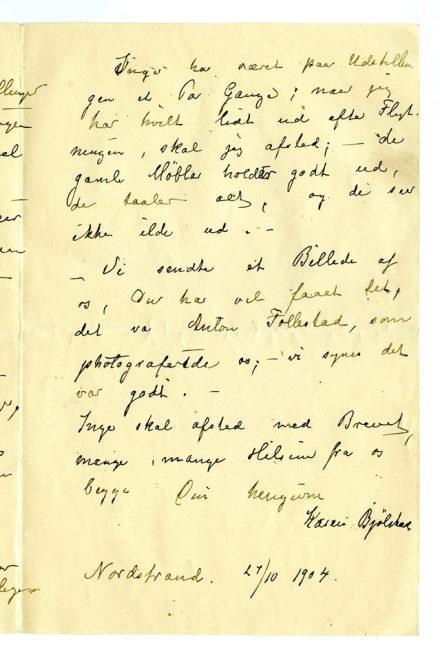 Inge har været paa Udstillin
gen et Par Gange; naar jeg
har hvilt lidt ud efter Flyt-
ningen, skal jeg afsted; – de
gamle Møbler holder godt ud,
de taaler alt, og de ser
ikke ilde ud. –
– Vi sendte et Billede af
os, Du har vel faaet det,
det var Anton Follestad, som
photograferte os; – vi synes det
var godt. –
Inge skal afsted med Brevet,
mange, mange Hilsener fra os
begge Din hengivne
Karen
Nordstrand. /10 1904.